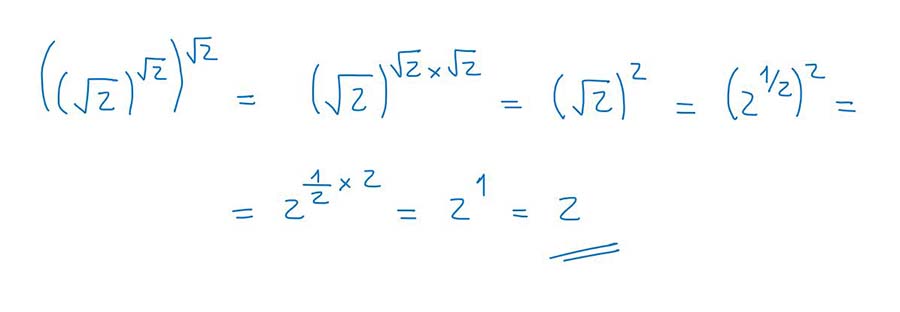 ((√2)^√2)^√2 = (√2)^√2×√2 = (√2)^2 = (2^1/2)^2 =
= 2^1/2 × 2 = 2^1 = 2